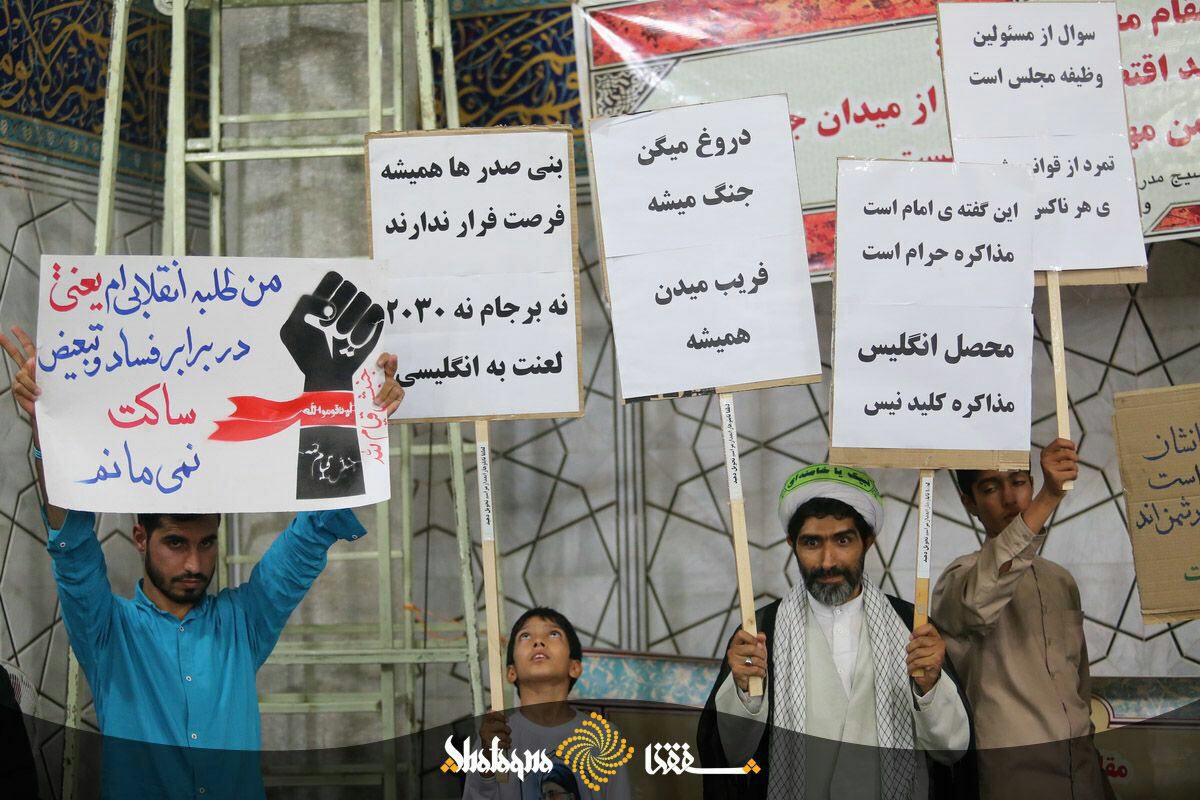 من طلبه انقلابی‌ام یعنی
در برابر فساد و تبعیض
ساکت
نمی‌مانم
بنی صدر ها همیشه
فرصت فرار ندارند
نه برجام نه ۲۰۳۰
لعنت به انگلیسی
دروغ میگن
جنگ میشه
فریب میدن
همیشه
این گفته ی امام است
مذاکره حرام است
محصل انگلیس
مذاکره کلید نیس
سوال از مسئولین
وظیفه مجلس است
تمرد از قوانین
ی هر ناکس
مقام
اقتص
از میدان
لبیک یا خامنه ای
انشان
است
شمن‌اند
Shafaqna
شفقنا